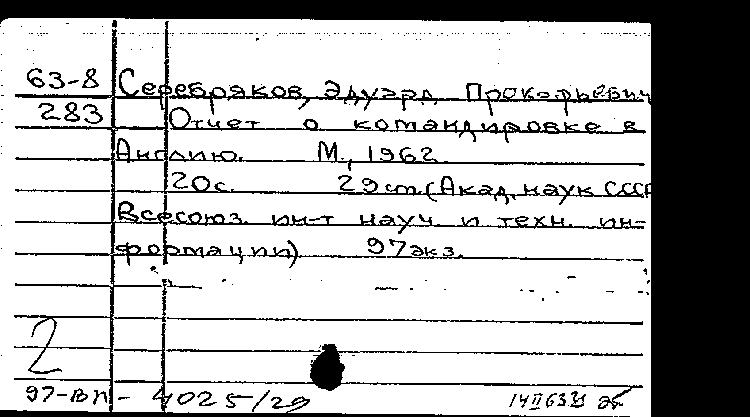 63-8 Серебряков, Эдуард Прокофьевич
283 Отчет о командировке в
Англию. М., 1962
20с. 29 cm (Акад. наук СССР
Всесоюз. ин-т науч. и техн. ин-
формации) 97 экз.
2
97-ВП- 4025/29 14 II 63